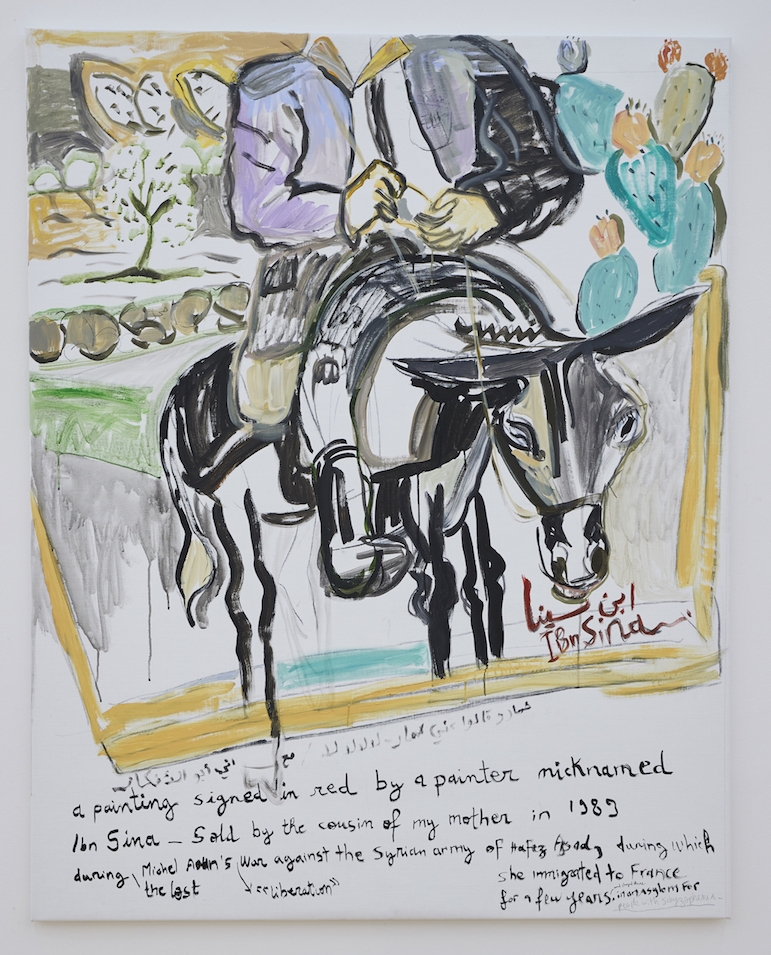 ابن سينا
IBn Sina
a painting signed in red by a painter nicknamed
Ibn Sina _ Sold by the cousin of my mother in 1989
during Michel Aoun's War against the Syrian army of Hafez Assad, during which
the lost "liberation" she immigrated to France
for a few years. in an asylum for